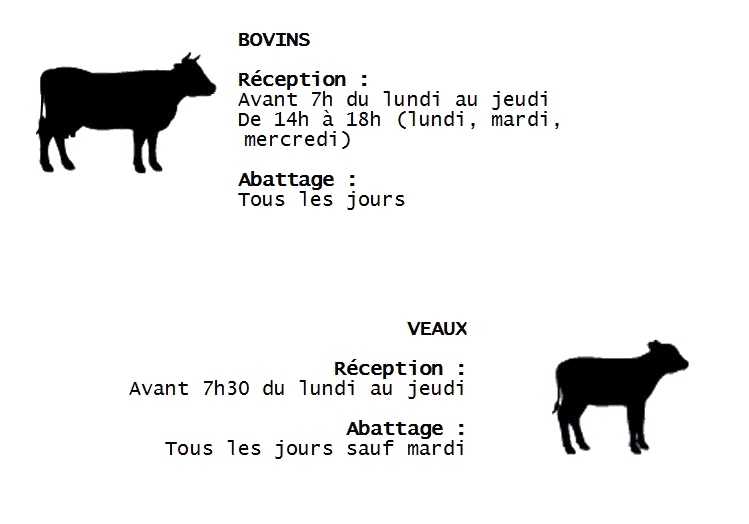 BOVINS
Réception :
Avant 7h du lundi au jeudi
De 14h à 18h (lundi, mardi,
mercredi)
Abattage :
Tous les jours
VEAUX
Réception :
Avant 7h30 du lundi au jeudi
Abattage :
Tous les jours sauf mardi